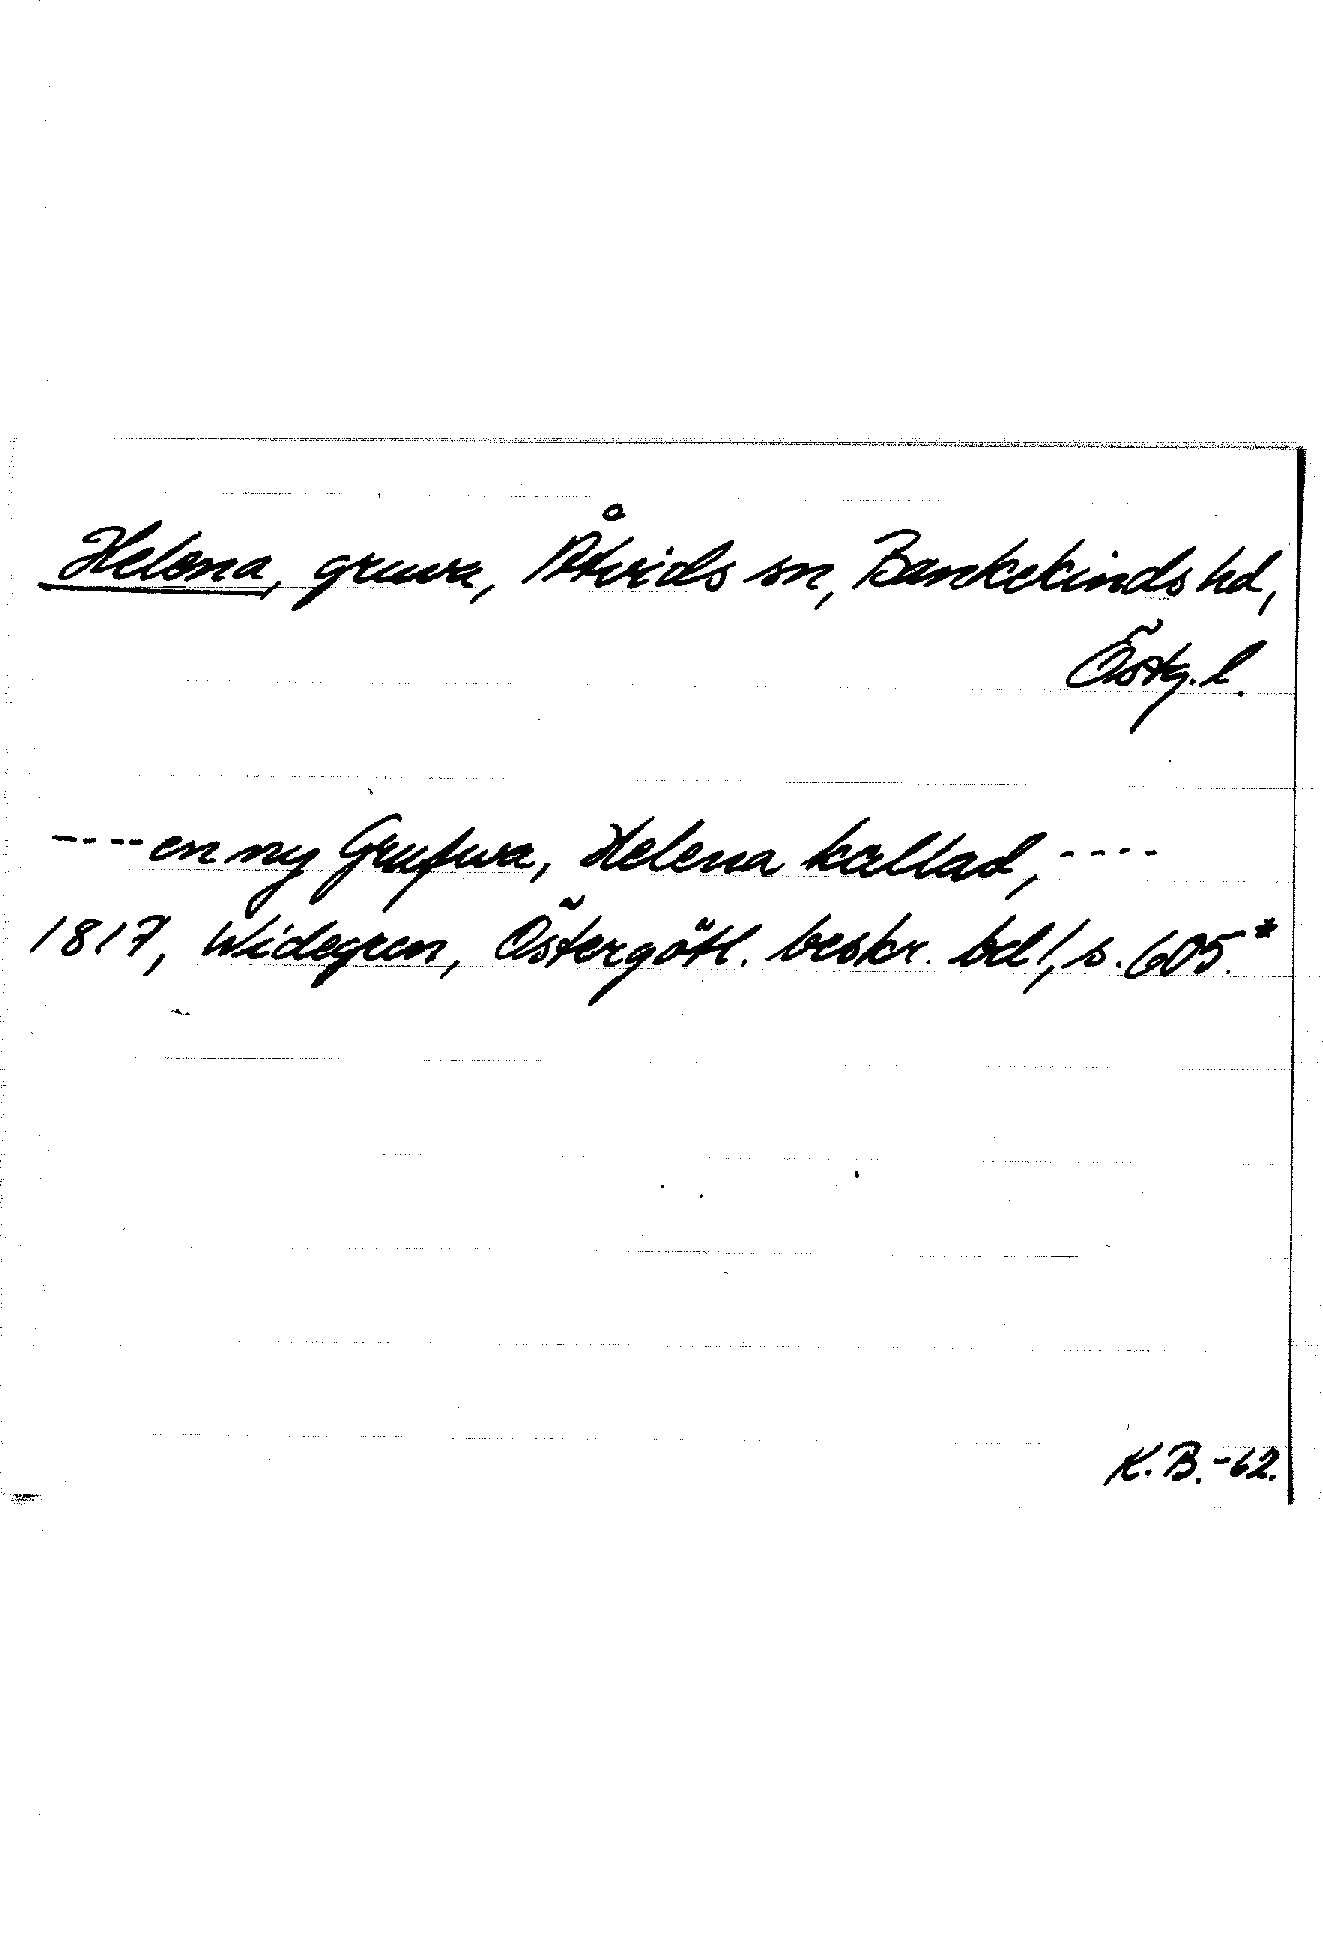 Helena, gruva, Åtvids sn, Bankekinds hd,
Östg. l.
---- en ny Grufwa, Helena kallad, ----
1817, Widegren, Östergötl. beskr. bd 1, s. 605.*
K. B. -62.